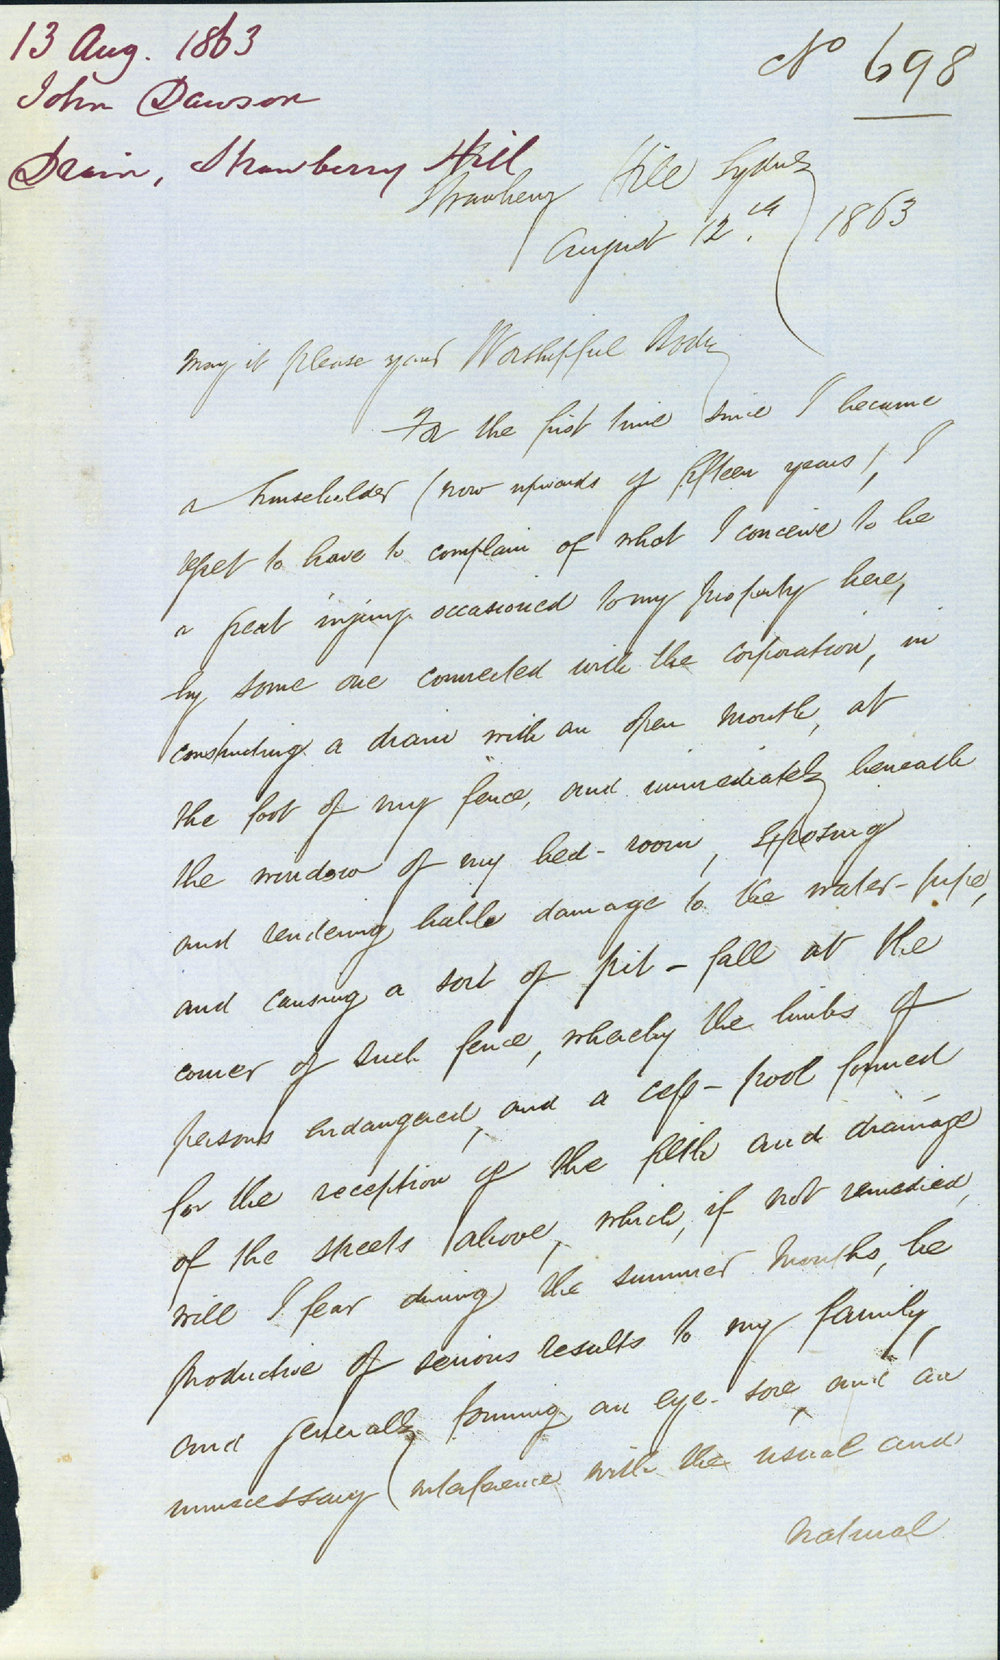 13 Aug. 1863
No 698
John Dawson
Drain, Strawberry Hill
Strawberry Hill Sydney
August 12th 1863
May it please your Worshipful Body
For the first time since I became
a householder (now upwards of fifteen years), I
regret to have to complain of what I conceive to be
a great injury occasioned to my property here,
by some one connected with the corporation, in
constructing a drain with an open mouth, at
the foot of my fence, and immediately beneath
the window of my bed-room, exposing
and rendering liable damage to the water-pipe,
and causing a sort of pit-fall at the
corner of such fence, whereby the limbs of
persons endangered, and a cess-pool formed
for the reception of the filth and drainage
of the streets above, which, if not remedied,
will I fear during the summer months, be
productive of serious results to my family,
and generally forming an eye-sore, and an
unnecessary interference with the usual and
natural